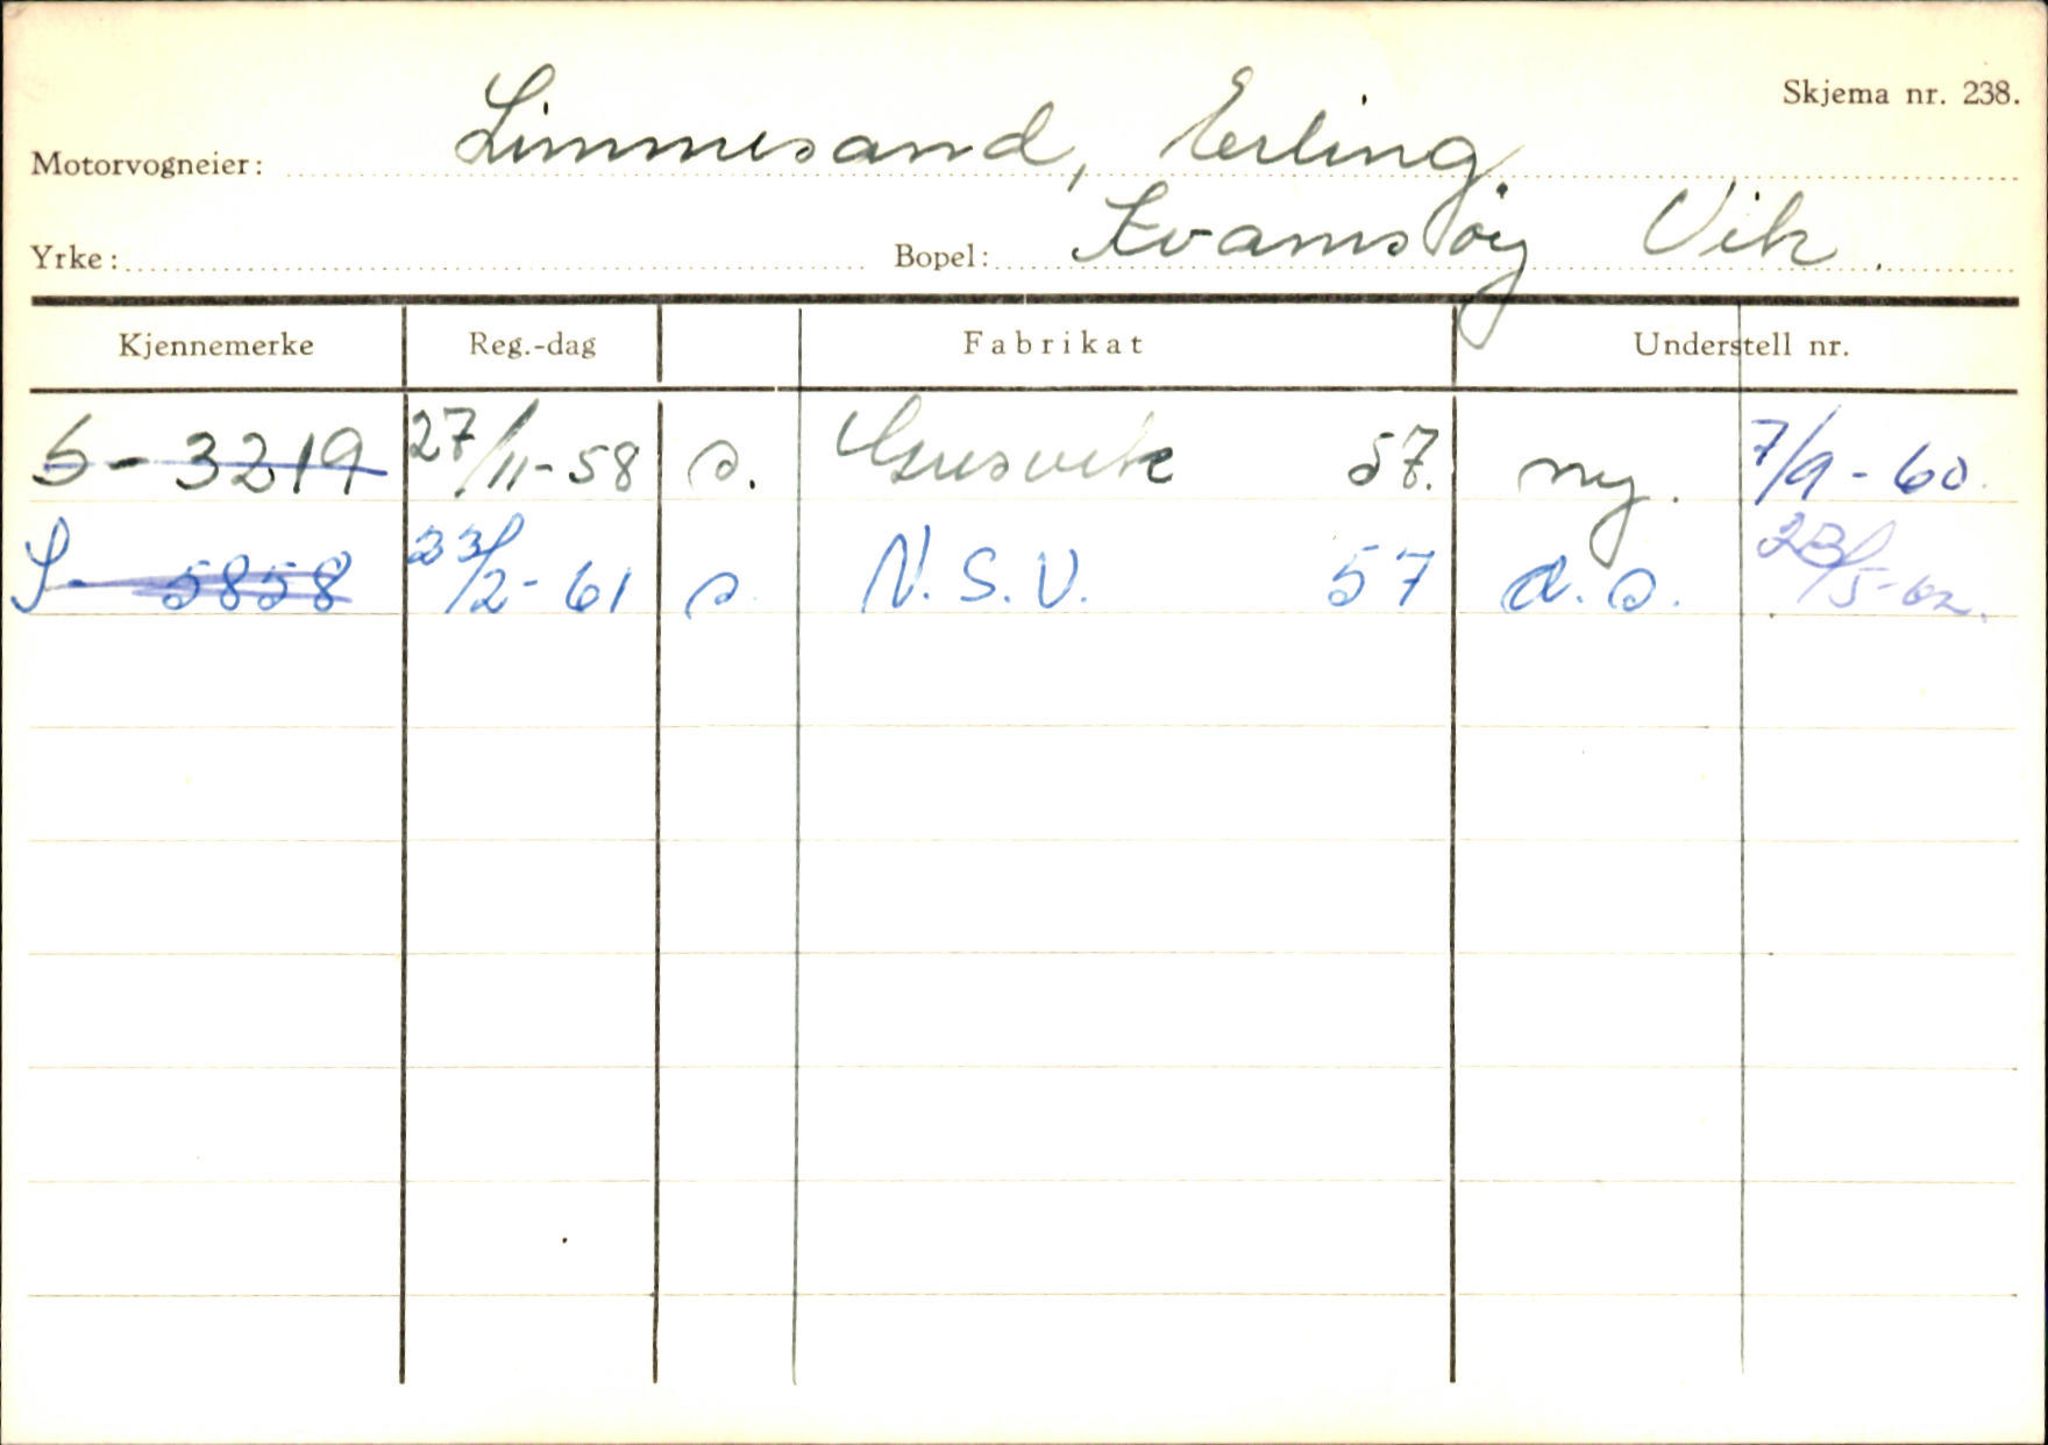 Skjema nr. 238.
Motorvogneier: Limmesand, Erling
Yrke: Bopel: Kvamsøy Vik.
Kjennemerke Reg.-dag Fabrikat Understell nr.
S-3219 27/11-58 s. Gresvik 57. ny. 7/9-60.
S-5858 23/2-61 s. N.S.U. 57 d.s. 23/5-62.